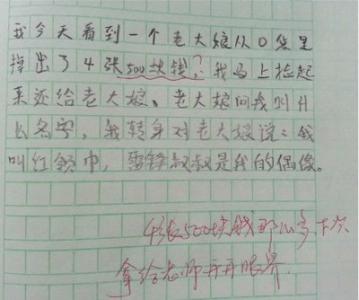 我今天看到一个老大娘从0袋里
掉出了4张500块钱?我马上捡起
来还给老大娘、老大娘问我叫什
么名字,我转身对老大娘说:我
叫红领巾,雷锋叔叔是我的偶像。
4张500块钱那么多,下次
拿给老师开开眼界.